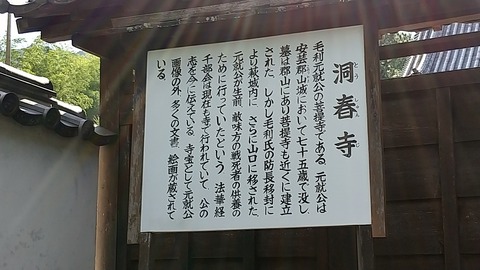 洞春寺
とうしゅんじ
毛利元就公の菩提寺である。元就公は
安芸郡山城において七十五歳で没し
墓は郡山にあり菩提寺も近くに建立
された。しかし毛利氏の防長移封に
より萩城内に、さらに山口に移された。
元就公が生前、敵味方の戦死者の供養の
ために行っていたという、法華経
千部会は現在も寺で行われていて、公の
志を今に伝えている。寺宝として元就公
画像の外、多くの文書、絵画が蔵されて
いる。